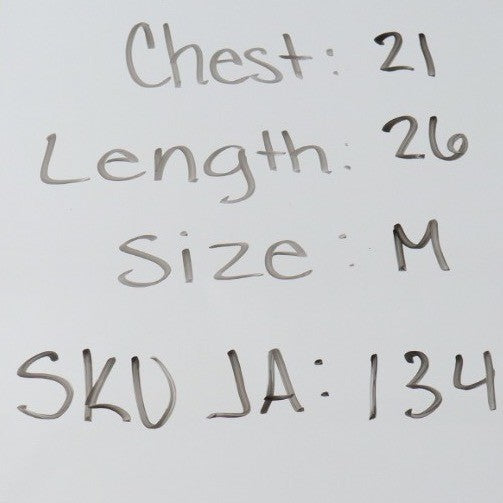 Chest: 21
Length: 26
Size: M
SKU JA: 134